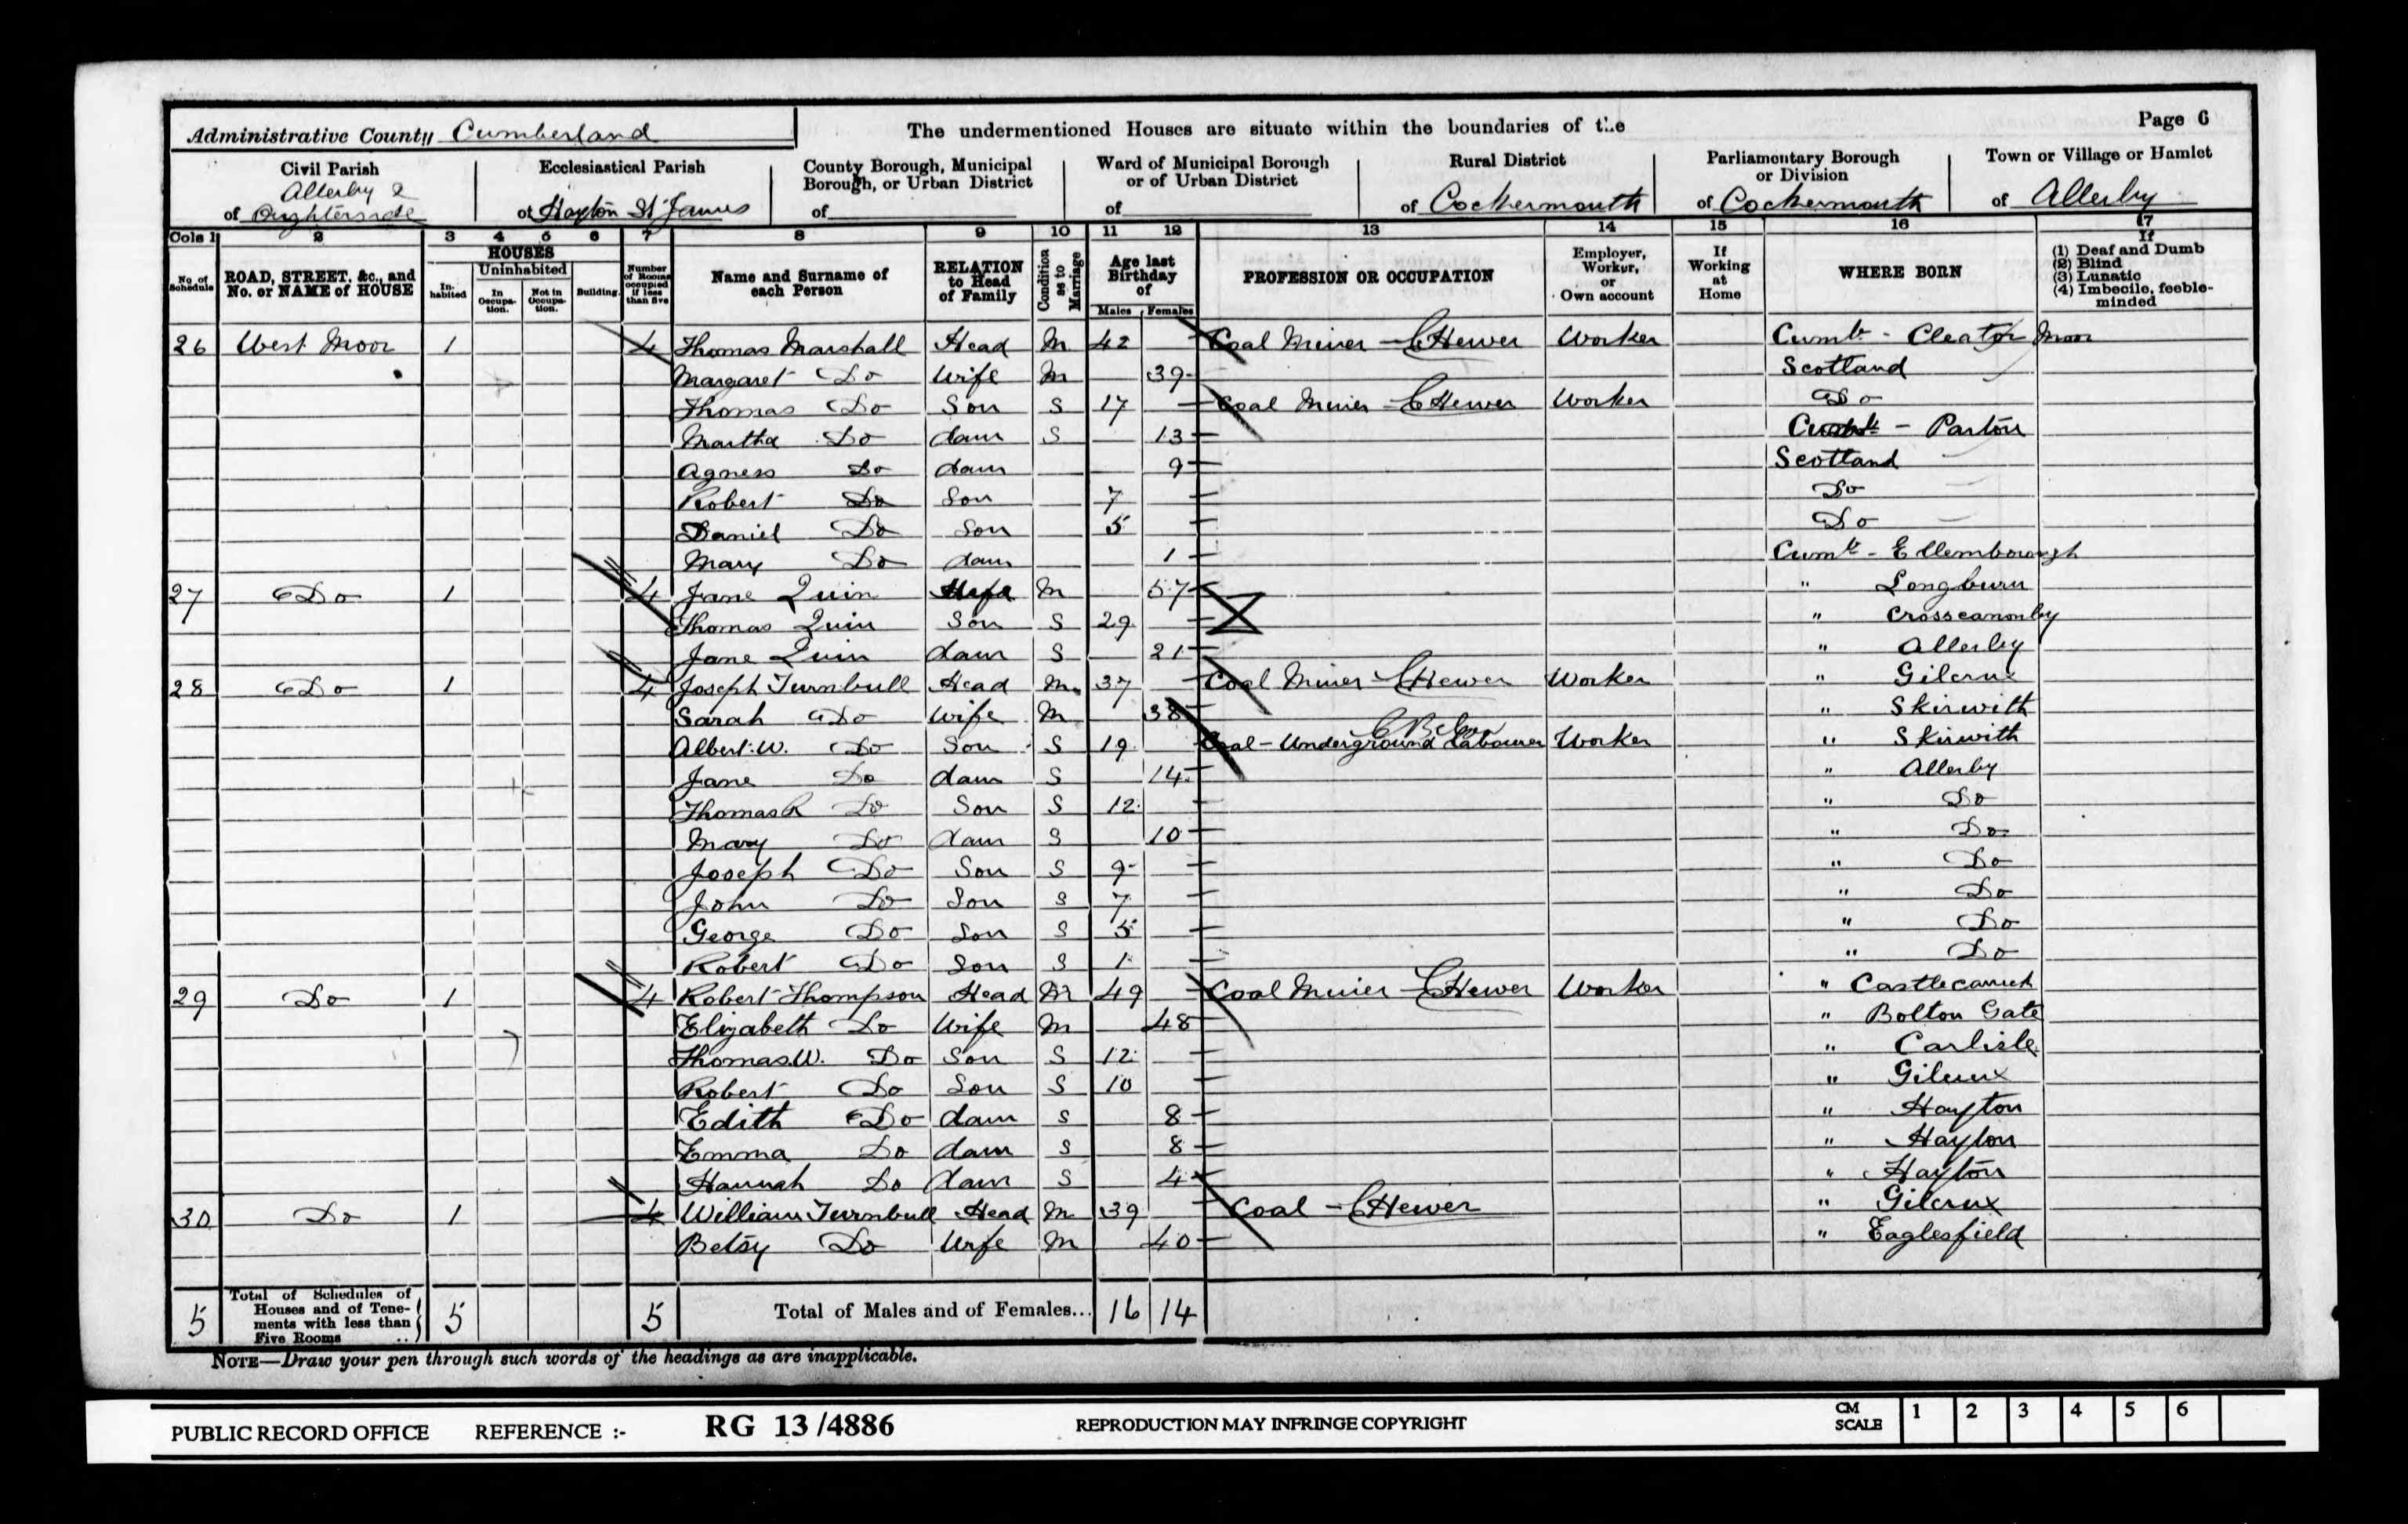 Administrative County Cumberland
The undermentioned Houses are situate within the boundaries of the
Page 6
Civil Parish
of Allerby & Oughterside
Ecclesiastical Parish
of Hayton St James
County Borough, Municipal Borough, or Urban District
of
Ward of Municipal Borough or of Urban District
of
Rural District
of Cockermouth
Parliamentary Borough or Division
of Cockermouth
Town or Village or Hamlet
of Allerby
Cols 1 2 3 4 5 6 7 8 9 10 11 12 13 14 15 16 17
No. of Schedule
ROAD, STREET, &c., and No. or NAME of HOUSE
HOUSES
Inhabited
Uninhabited
In Occupation.
Not in Occupation.
Building.
Number of Rooms occupied if less than five
Name and Surname of each Person
RELATION to Head of Family
Condition as to Marriage
Age last Birthday of
Males Females
PROFESSION OR OCCUPATION
Employer, Worker, or Own account
If Working at Home
WHERE BORN
If
(1) Deaf and Dumb
(2) Blind
(3) Lunatic
(4) Imbecile, feeble-minded
26 West Moor 1 4 Thomas Marshall Head M 42 Coal Miner - Hewer Worker Cumb - Cleator Moor
Margaret Do Wife M 39 Scotland
Thomas Do Son S 17 Coal Miner - Hewer Worker Do
Martha Do daur S 13 Cumb - Parton
Agness Do daur 9 Scotland
Robert Do Son 7 Do
Daniel Do Son 5 Do
Mary Do daur 1 Cumb - Ellemborough
27 Do 1 4 Jane Quin Wife M 57 " Longburn
Thomas Quin Son S 29 " Crosscanonby
Jane Quin daur S 21 " Allerby
28 Do 1 4 Joseph Turnbull Head M 37 Coal Miner Hewer Worker " Gilcrux
Sarah Do Wife M 38 " Skirwith
Albert. W. Do Son S 19 Coal - Underground Labourer Worker " Skirwith
Jane Do daur S 14 " Allerby
Thomas R Do Son S 12 " Do
Mary Do daur S 10 " Do
Joseph Do Son S 9 " Do
John Do Son S 7 " Do
George Do Son S 5 " Do
Robert Do Son S 1 " Do
29 Do 1 4 Robert Thompson Head M 49 Coal Miner - Hewer Worker " Castlecarrick
Elizabeth Do Wife M 48 " Bolton Gate
Thomas. W. Do Son S 12 " Carlisle
Robert Do Son S 10 " Gilcrux
Edith Do daur S 8 " Hayton
Emma Do daur S 8 " Hayton
Hannah Do daur S 4 " Hayton
30 Do 1 4 William Turnbull Head M 39 Coal - Hewer " Gilcrux
Betsy Do Wife M 40 " Eaglesfield
5 Total of Schedules of Houses and of Tenements with less than Five Rooms .. 5 5 Total of Males and of Females... 16 14
NOTE—Draw your pen through such words of the headings as are inapplicable.
PUBLIC RECORD OFFICE REFERENCE :- RG 13/4886 REPRODUCTION MAY INFRINGE COPYRIGHT CM SCALE 1 2 3 4 5 6